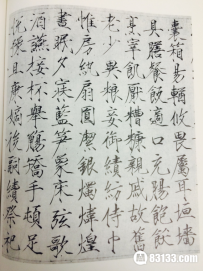 囊箱易輶攸畏屬耳垣牆
具膳餐飯適口充腸飽飫
烹宰飢厭糟糠親戚故舊
老少異糧妾御績紡侍巾
帷房紈扇圓潔銀燭煒煌
晝眠夕寐藍笋象床弦歌
酒讌接杯舉觴矯手頓足
悅豫且康嫡後嗣續祭祀
83133.com